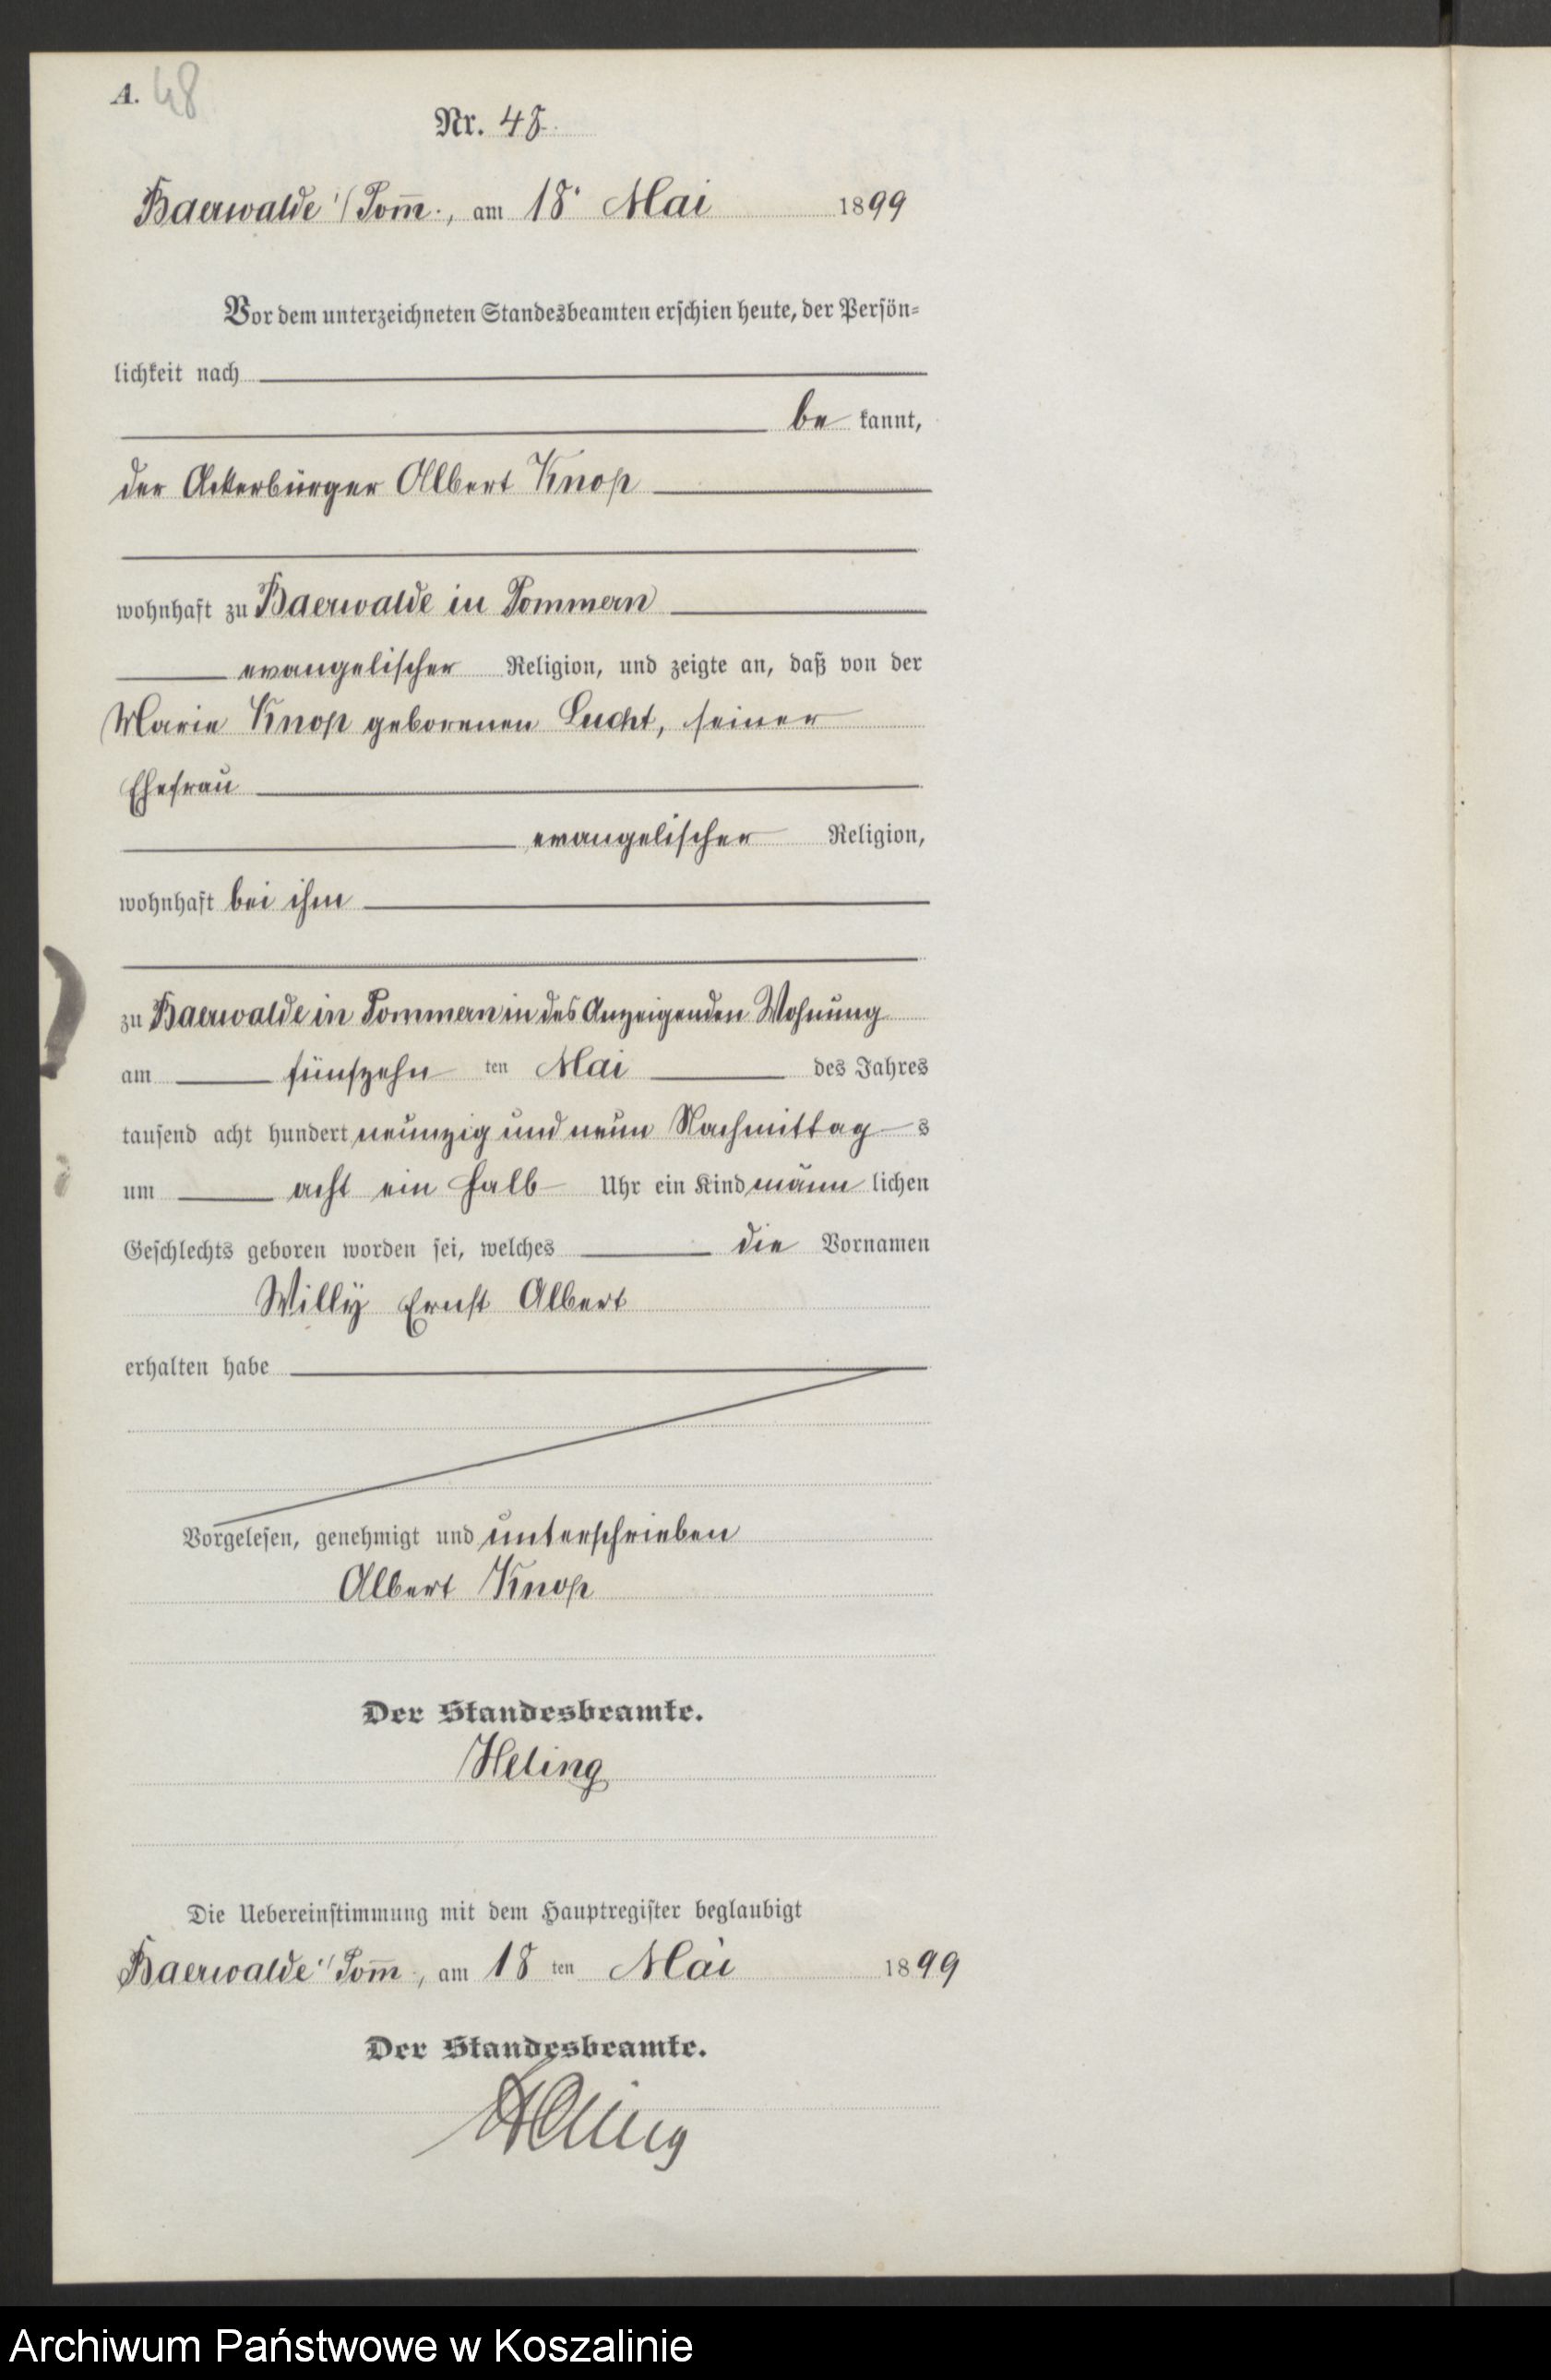 A. 48
Nr. 48.
Baerwalde i/Pom̅., am 18. Mai 1899
Vor dem unterzeichneten Standesbeamten erschien heute, der Persön-
lichkeit nach
be kannt,
der Ackerbürger Albert Knop
wohnhaft zu Baerwalde in Pommern
evangelischer Religion, und zeigte an, daß von der
Marie Knop geborenen Lucht, seiner
Ehefrau
evangelischer Religion,
wohnhaft bei ihm
zu Baerwalde in Pommern in des Anzeigenden Wohnung
am fünfzehn ten Mai des Jahres
tausend acht hundert neunzig und neun Nachmittag s
um acht ein halb Uhr ein Kind männ lichen
Geschlechts geboren worden sei, welches die Vornamen
Willÿ Ernst Albert
erhalten habe
Vorgelesen, genehmigt und unterschrieben
Albert Knop
Der Standesbeamte.
Heling
Die Uebereinstimmung mit dem Hauptregister beglaubigt
Baerwalde i/Pom̅., am 18 ten Mai 1899
Der Standesbeamte.
Heling
Archiwum Państwowe w Koszalinie